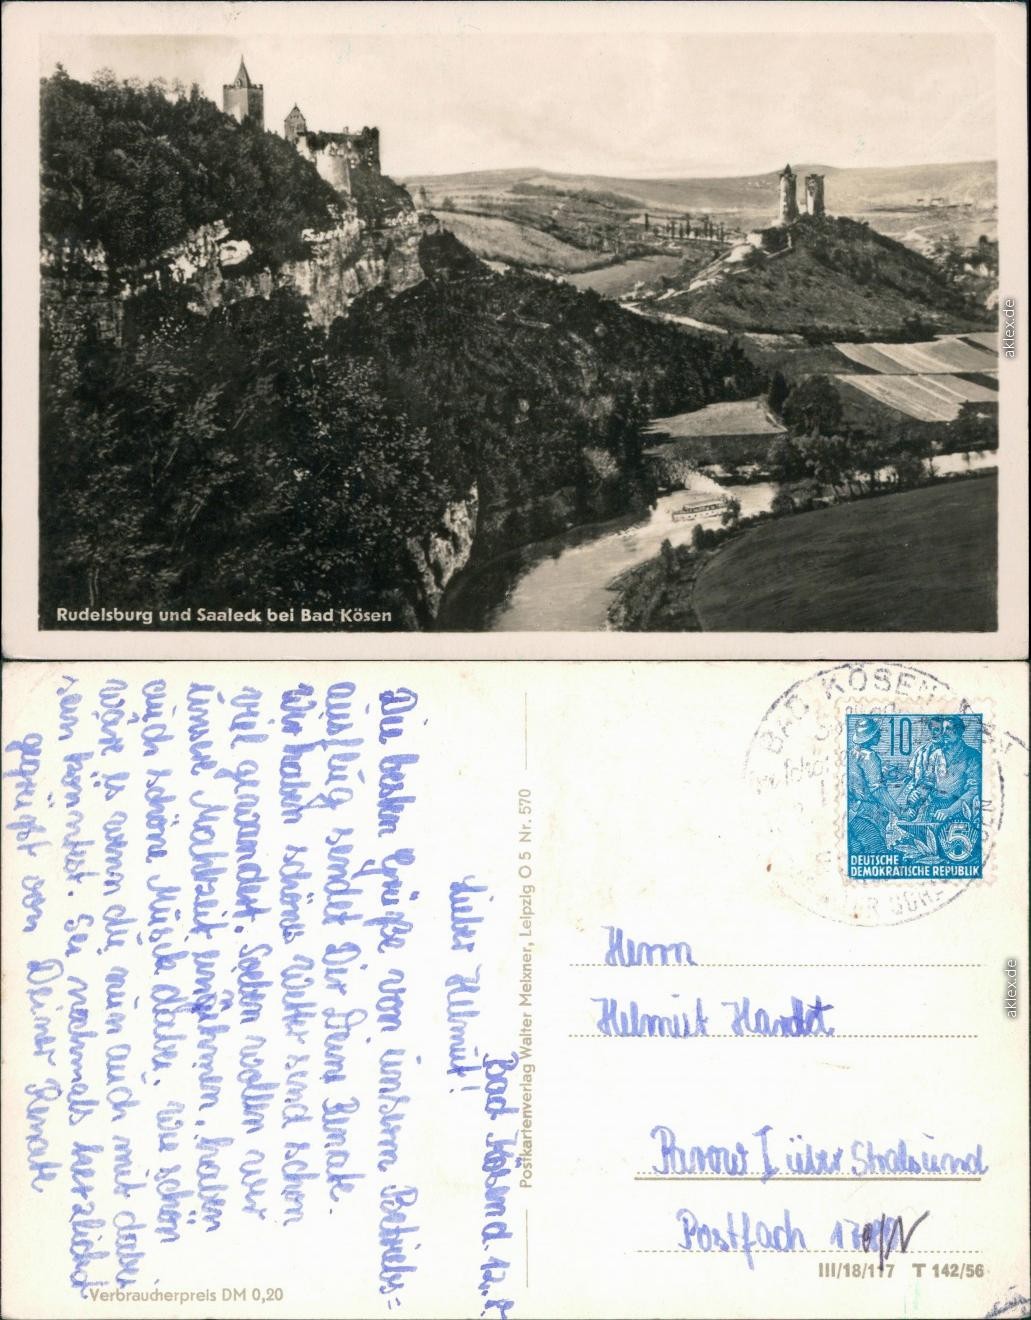 Rudelsburg und Saaleck bei Bad Kösen
aklex.de
Bad Kösen d. 12. 7.
Lieber Helmut!
Die besten Grüße von unserem Betriebs=
ausflug sendet Dir Deine Renate.
Wir haben schönes Wetter sind schon
viel gewandert. Soeben wollen wir
unsere Mahlzeit einnehmen, haben
auch schöne Musik dabei. Wie schön
wäre es wenn du nun auch mit dabei
sein könntest. Sei nochmals herzlichst
gegrüßt von Deiner Renate
Verbraucherpreis DM 0,20
Postkartenverlag Walter Meixner, Leipzig O 5 Nr. 570
BAD KÖSEN
10
5
DEUTSCHE
DEMOKRATISCHE REPUBLIK
Herrn
Helmut Handt
Parow I über Stralsund
Postfach
III/18/117 T 142/56
aklex.de